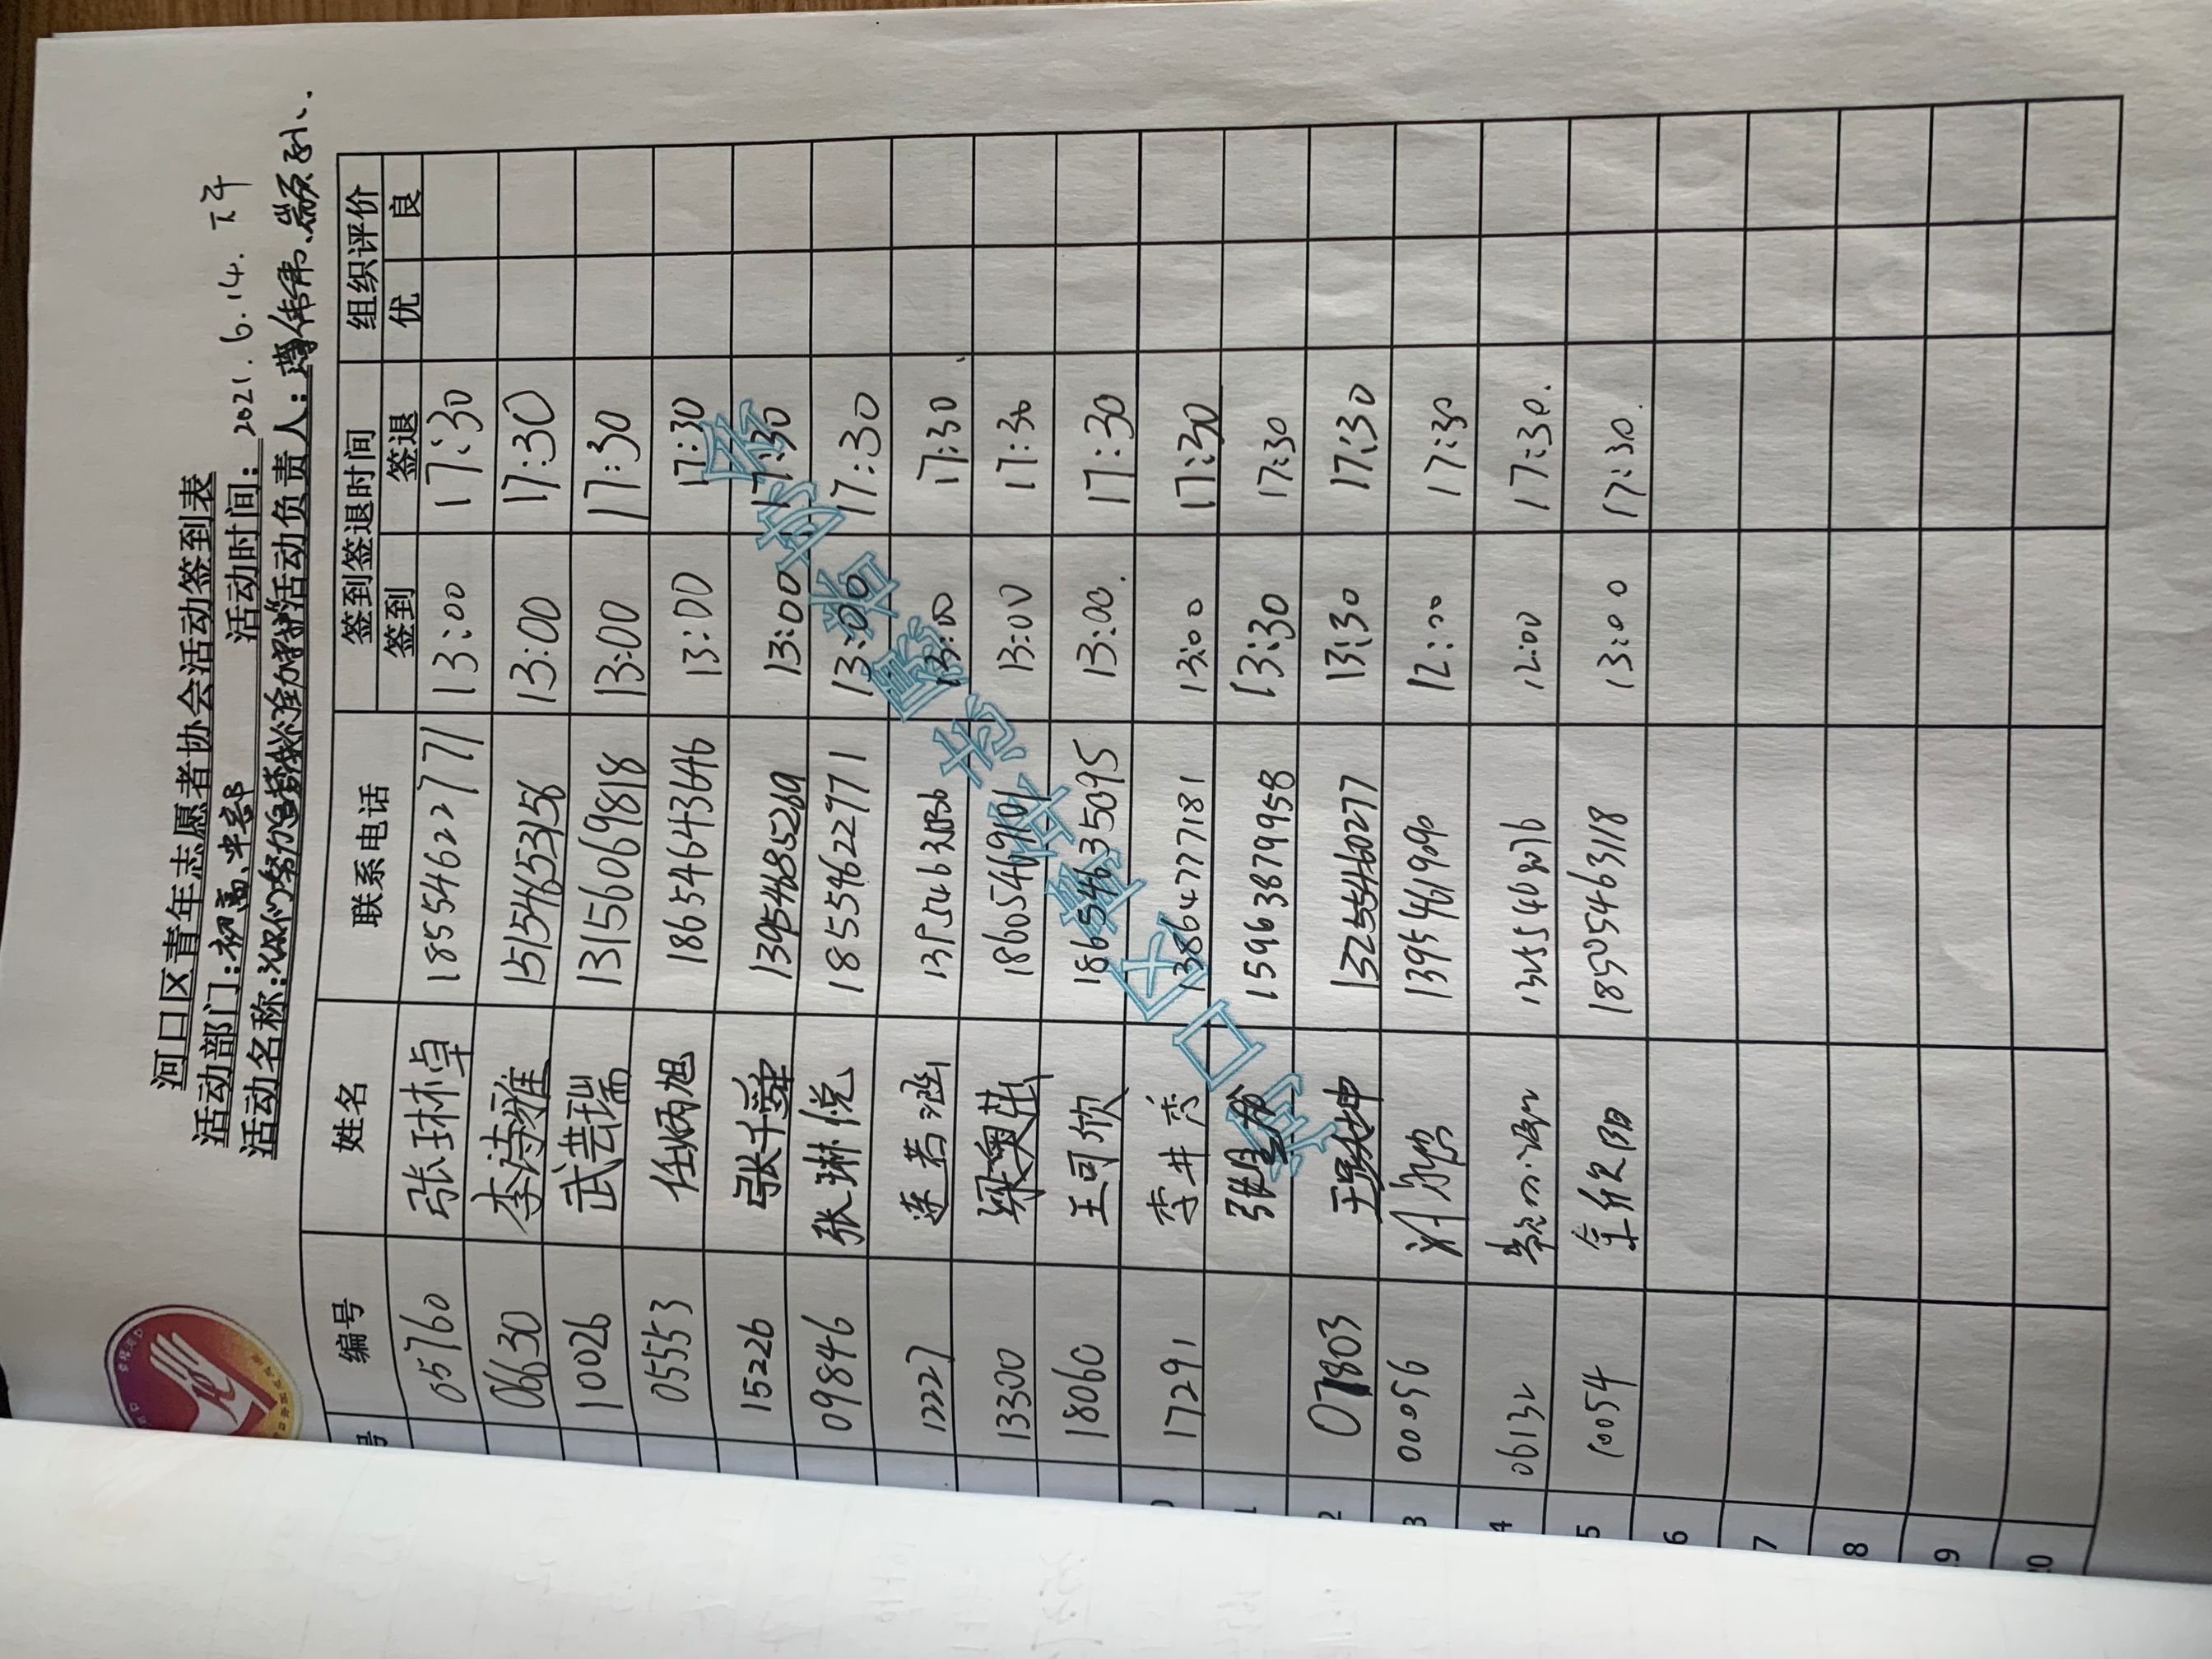 河口区青年志愿者协会活动签到表
活动部门:初高、半部 活动时间:2021.6.14.下午
活动名称: 活动负责人:
号 编号 姓名 联系电话 签到签退时间 组织评价
签到 签退 优 良
05760 张琳卓 18554622771 13:00 17:30
06630 李诗雅 15154653156 13:00 17:30
10026 武芸瑞 13156069818 13:00 17:30
05553 任炳旭 18654643646 13:00 17:30
15226 张千舜 13954685269 13:00 17:30
09846 张琳悦 18554622771 13:00 17:30
12227 连若涵 13:00 17:30
13300 梁奥莊 18605469101 13:00 17:30
18060 王司欣 18654635095 13:00. 17:30
0 17291 李井秀 13864777181 13:00 17:30
1 15963879958 13:30 17:30
2 07803 王奕坤 13255460277 13:30 17:30
3 00056 13954619090 12:00 17:30
4 06132 12:00 17:30.
5 10054 18505463118 13:00 17:30.
6
7
8
9
0
河口区融媒体中心